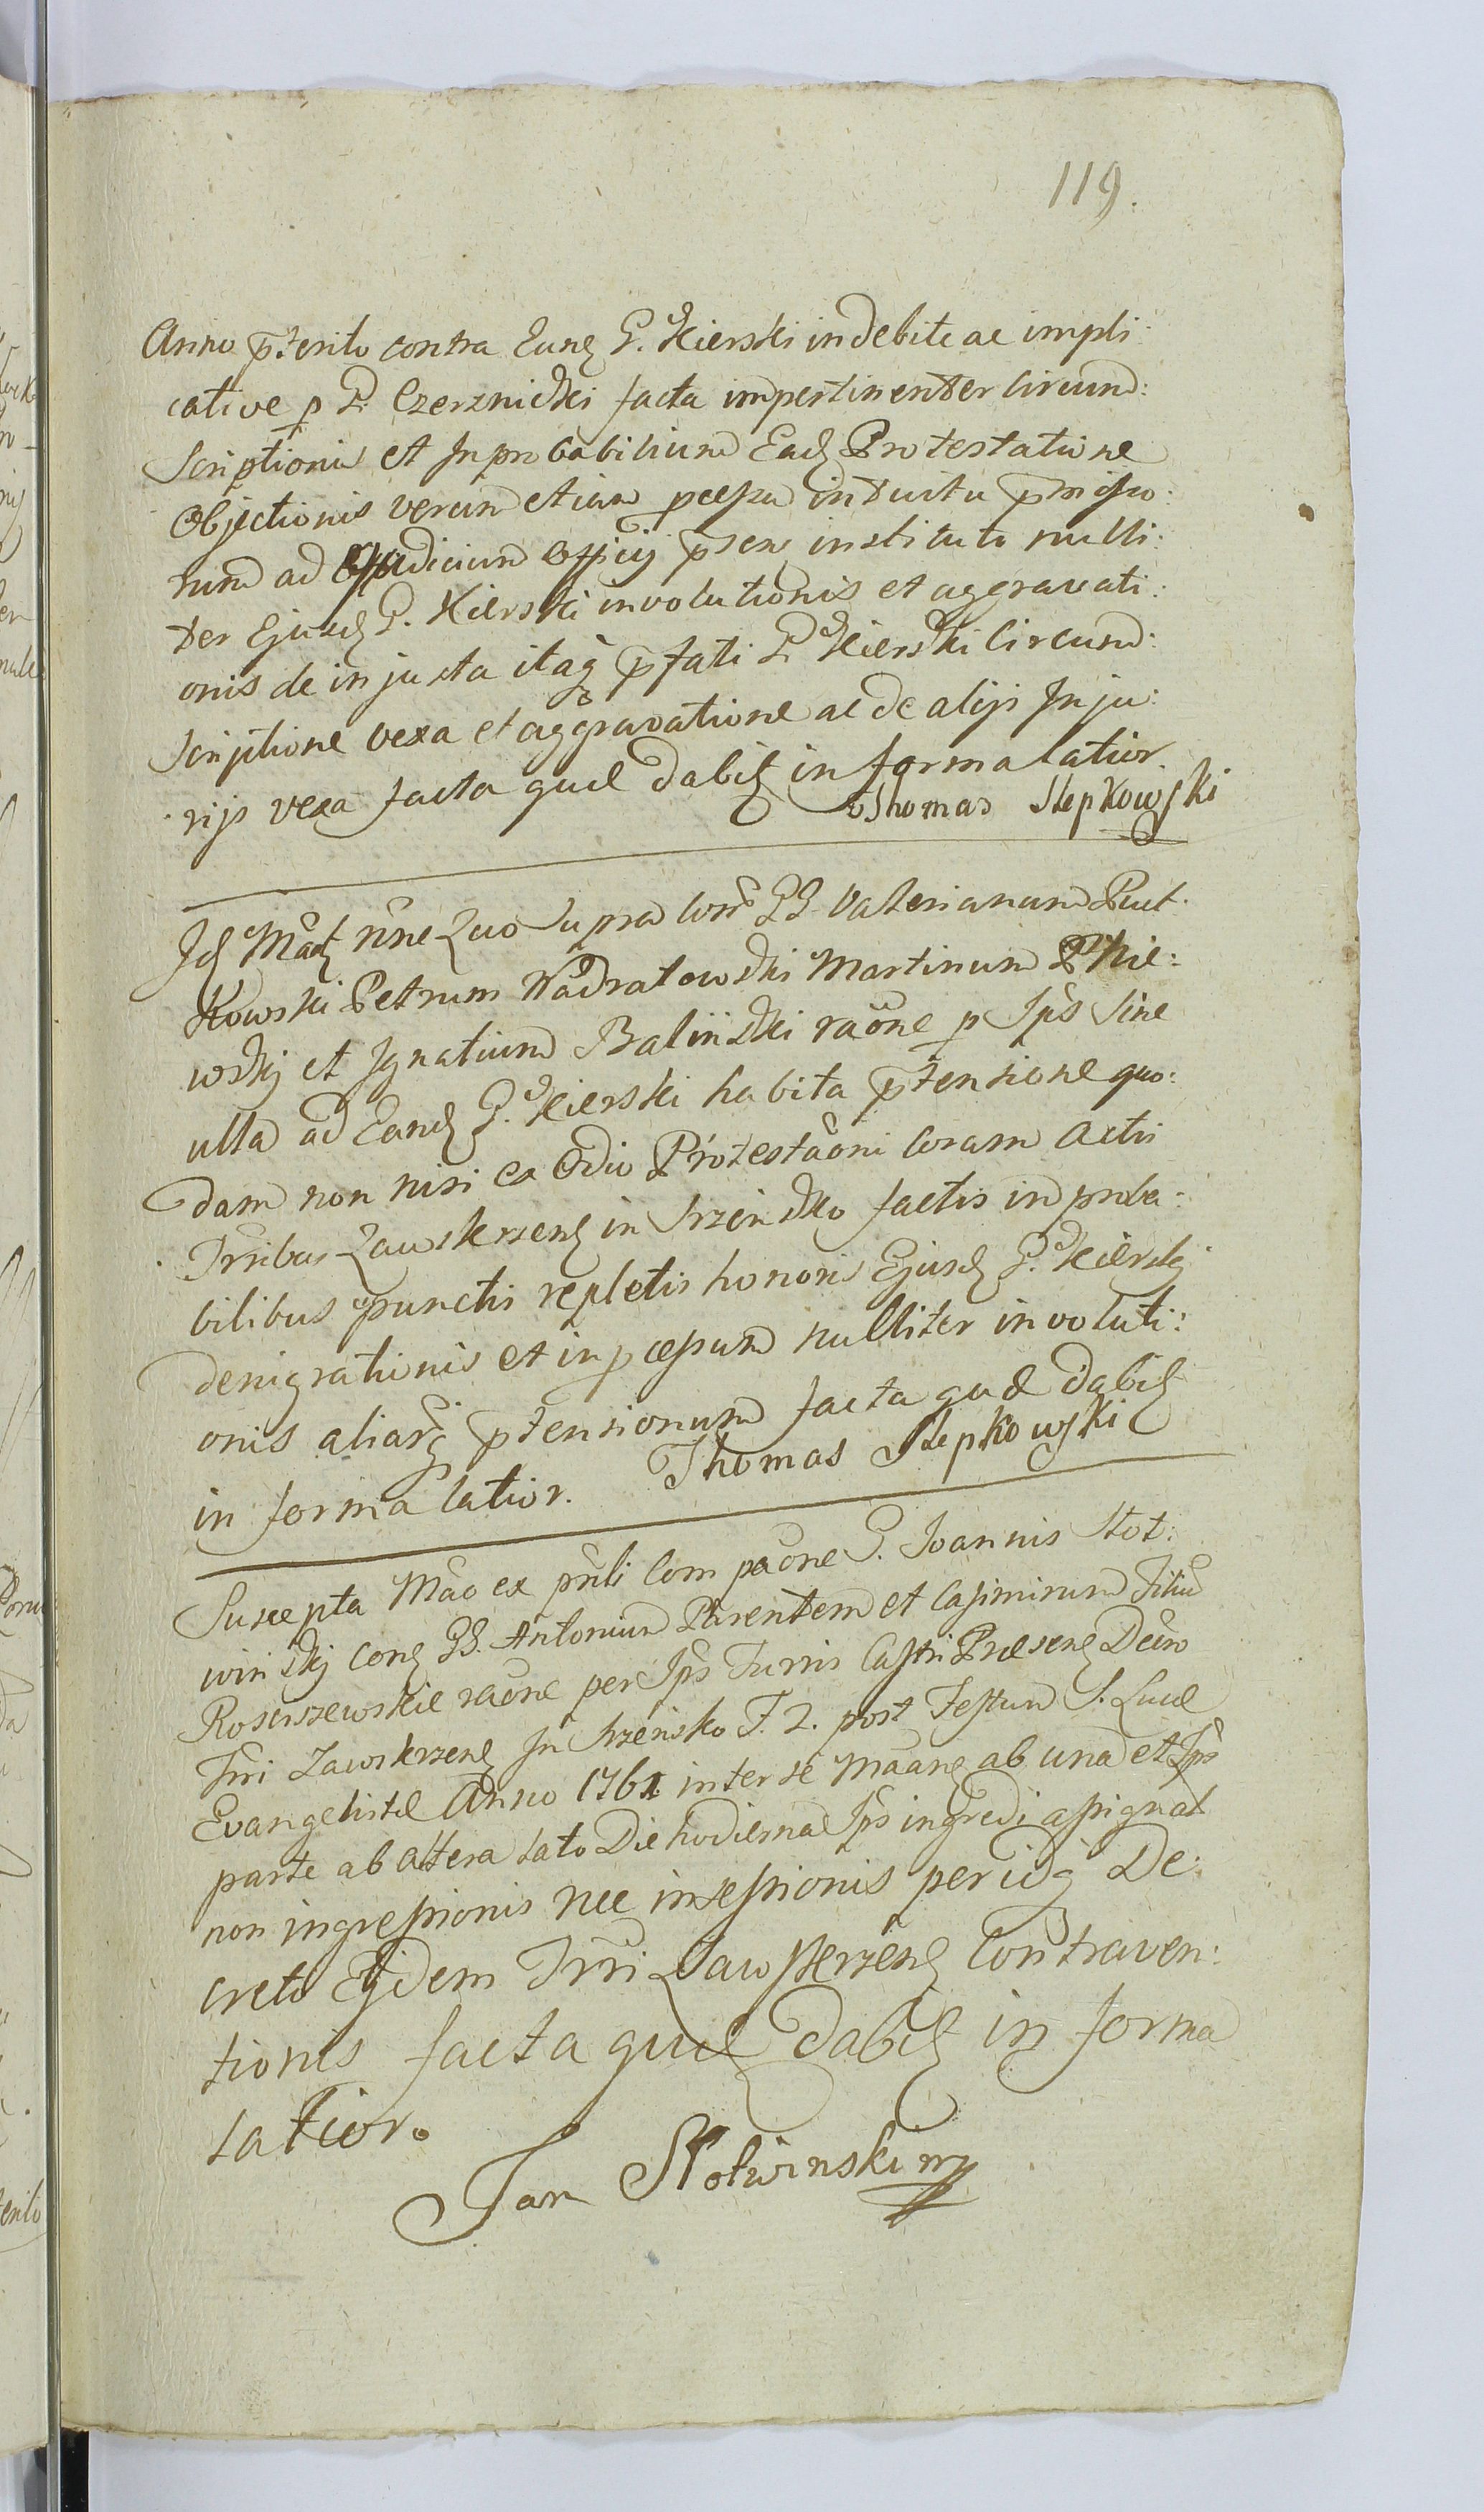 119.
Anno p̄terito contra Eunḍ G. Kierski indebite ac impli:
cative p G. Czerznicki facta impertinenter Circum:
Scriptionis et Inprobabilium Eadḍ Protestatione
Objectionis verum etiam pcessu intuitu p̄misso:
rum ad Officij p̄sens instituto nulli:
ter Ejusdḍ G. Kierski involutionis et aggravati:
onis de injusta itaq̃ p̄fati G. Kierski Circum:
scriptione vexa et aggravatione ac de alijs Inju:
rijs vexa facta quæ dabitḍ in forma latior.
Thomas Slepkowski
Idḍ nne Quo Supra Con GG. Valerianum Rut:
kowski Petrum Nadratowski Martinum Pkie:
wskij et Ignatium Baliński raõne p Ips Sine
ulla ad Eundḍ G. Kierski habita p̄tensione quo:
dam non nisi ex Odio Protestaõni Coram Actis
Trribus Zawskrzenḍ in Srzeńsko factis inproba:
bilibus punctis repletis honoris Ejusdḍ G. Kierskj
denigrationis et in pcessum nulliter involuti:
onis aliarq̃ p̄tensionum facta quæ dabitḍ
in forma latior. Thomas Slepkowski
Suscepta Mão ex pñli Com paõne G. Joannis Słot:
wińskij conḍ GG. Antonium Parentem et Casimirum Filiũ
Rosciszewskie raõne per Ips Turris Castri Præsenḍ Decro
Trri Zawskrzenḍ In Srzeńsko F. 2. post Festum S. Lucæ
Evangelistæ Anno 1761 inter se Māanḍ ab una et Ips
parte ab altera lato Die hodierna Ips ingredi assignat
non ingressionis nec insessionis per idq̃ De:
creto Ejdem Trri Zawskrzenḍ Contraven:
tionis facta quæ dabitḍ in forma
latior.
Jan Słotwinski mp